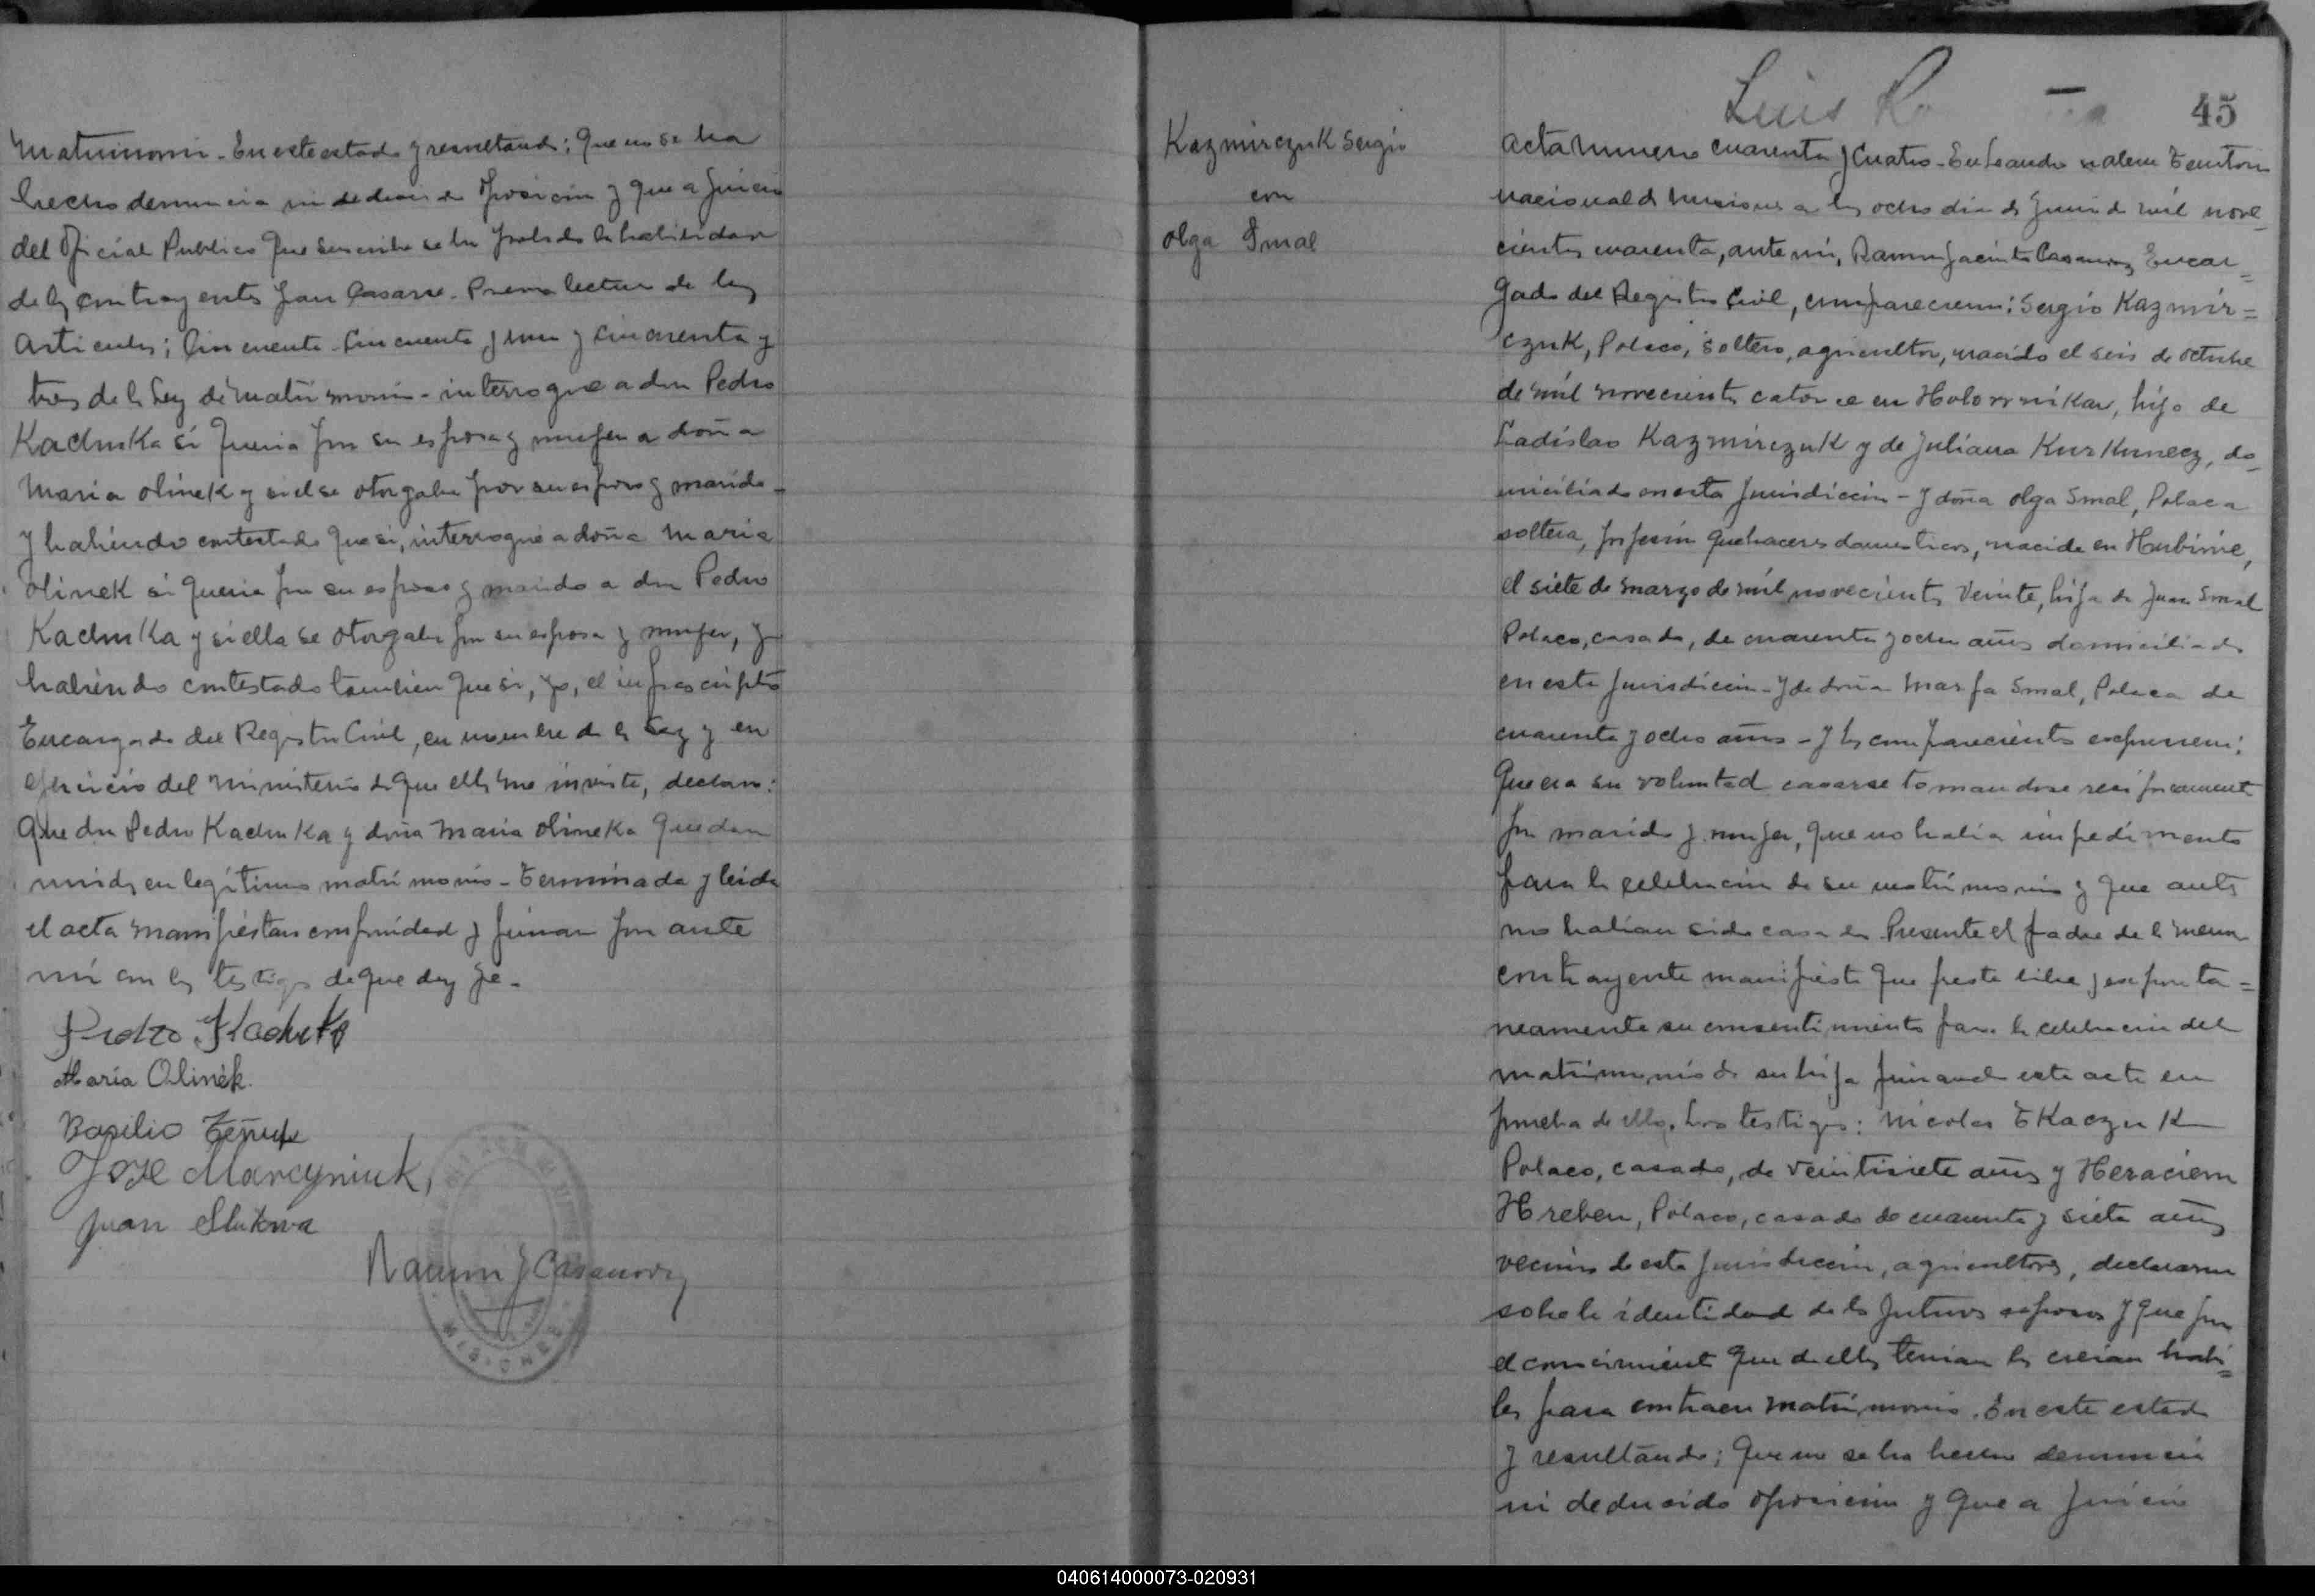 matrimonio - En este estado y resultando; Que no se ha
hecho denuncia ni deducido oposición y que a juicio
del Oficial Publico que suscribe se ha probado la habilidad
de los contrayentes para casarse - Previa lectura de los
Articulos; Cincuenta - Cincuenta y uno y cincuenta y
tres de la Ley de Matrimonio - interrogué a don Pedro
Kachuka si queria por su esposa y mujer a doña
Maria Olinek y si él se otorgaba por su esposo y marido -
y habiendo contestado que si, interrogué a doña Maria
Olinek si queria por su esposo y marido a don Pedro
Kachuka y si ella se otorgaba por su esposa y mujer, y
habiendo contestado tambien que si, yo, el infrascripto
Encargado del Registro Civil, en nombre de la Ley y en
ejercicio del ministerio de que ella me inviste, declaro:
Que don Pedro Kachuka y doña Maria Olineka quedan
unidos en legítimo matrimonio - Terminada y leida
el acta manifiestan conformidad y firman por ante
mí con los testigos de que doy fe -
Pedro Kachuka
Maria Olinek.
Basilio
José Marcyniuk,
Juan Slukwa
Ramon J Casanova
MISIONES
45
Luis
Kazmirczuk Sergio
con
Olga Smal
Acta Numero cuarenta y Cuatro - En Leandro N Alem Territorio
nacional de Misiones a los ocho dia de Junio de mil nove_
cientos cuarenta, ante mi, Ramon Jacinto Casanova, Encar=
gado del Registro Civil, comparecieron: Sergio Kazmir=
czuk, Polaco, soltero, agricultor, nacido el seis de octubre
de mil novecientos catorce en, hijo de
Ladislao Kazmirczuk y de Juliana Kurkunecz, do_
miciliado en esta Jurisdiccion - y doña Olga Smal, Polaca
soltera, profesión quehaceres domesticos, nacida en Hubinie,
el siete de marzo de mil novecientos veinte, hija de Juan Smal
Polaco, casado, de cuarenta y ocho años domiciliado
en esta Jurisdiccion - y de doña Marfa Smal, Polaca de
cuarenta y ocho años - y los comparecientes expusieron:
Que era su voluntad casarse tomandose reciprocamente
por marido y mujer, que no habia impedimento
para la celebracion de su matrimonio y que antes
no habian sido casados Presente el padre de la menor
contrayente manifiesta que presta libre y esponta=
neamente su consentimiento para la celebracion del
matrimonio de su hija firmando este acta en
prueba de ello. Los testigos: Nicolas Tkaczuk
Polaco, casado, de veintisiete años y
Hreben, Polaco, casado de cuarenta y siete años
vecinos de esta Jurisdiccion, agricultores, declararon
sobre la identidad de los futuros esposos y que por
el conocimiento que de ellos tenian los creian habi=
les para contraer matrimonio. En este estado
y resultando; Que no se ha hecho denuncia
ni deducido oposicion y que a juicio
040614000073-020931